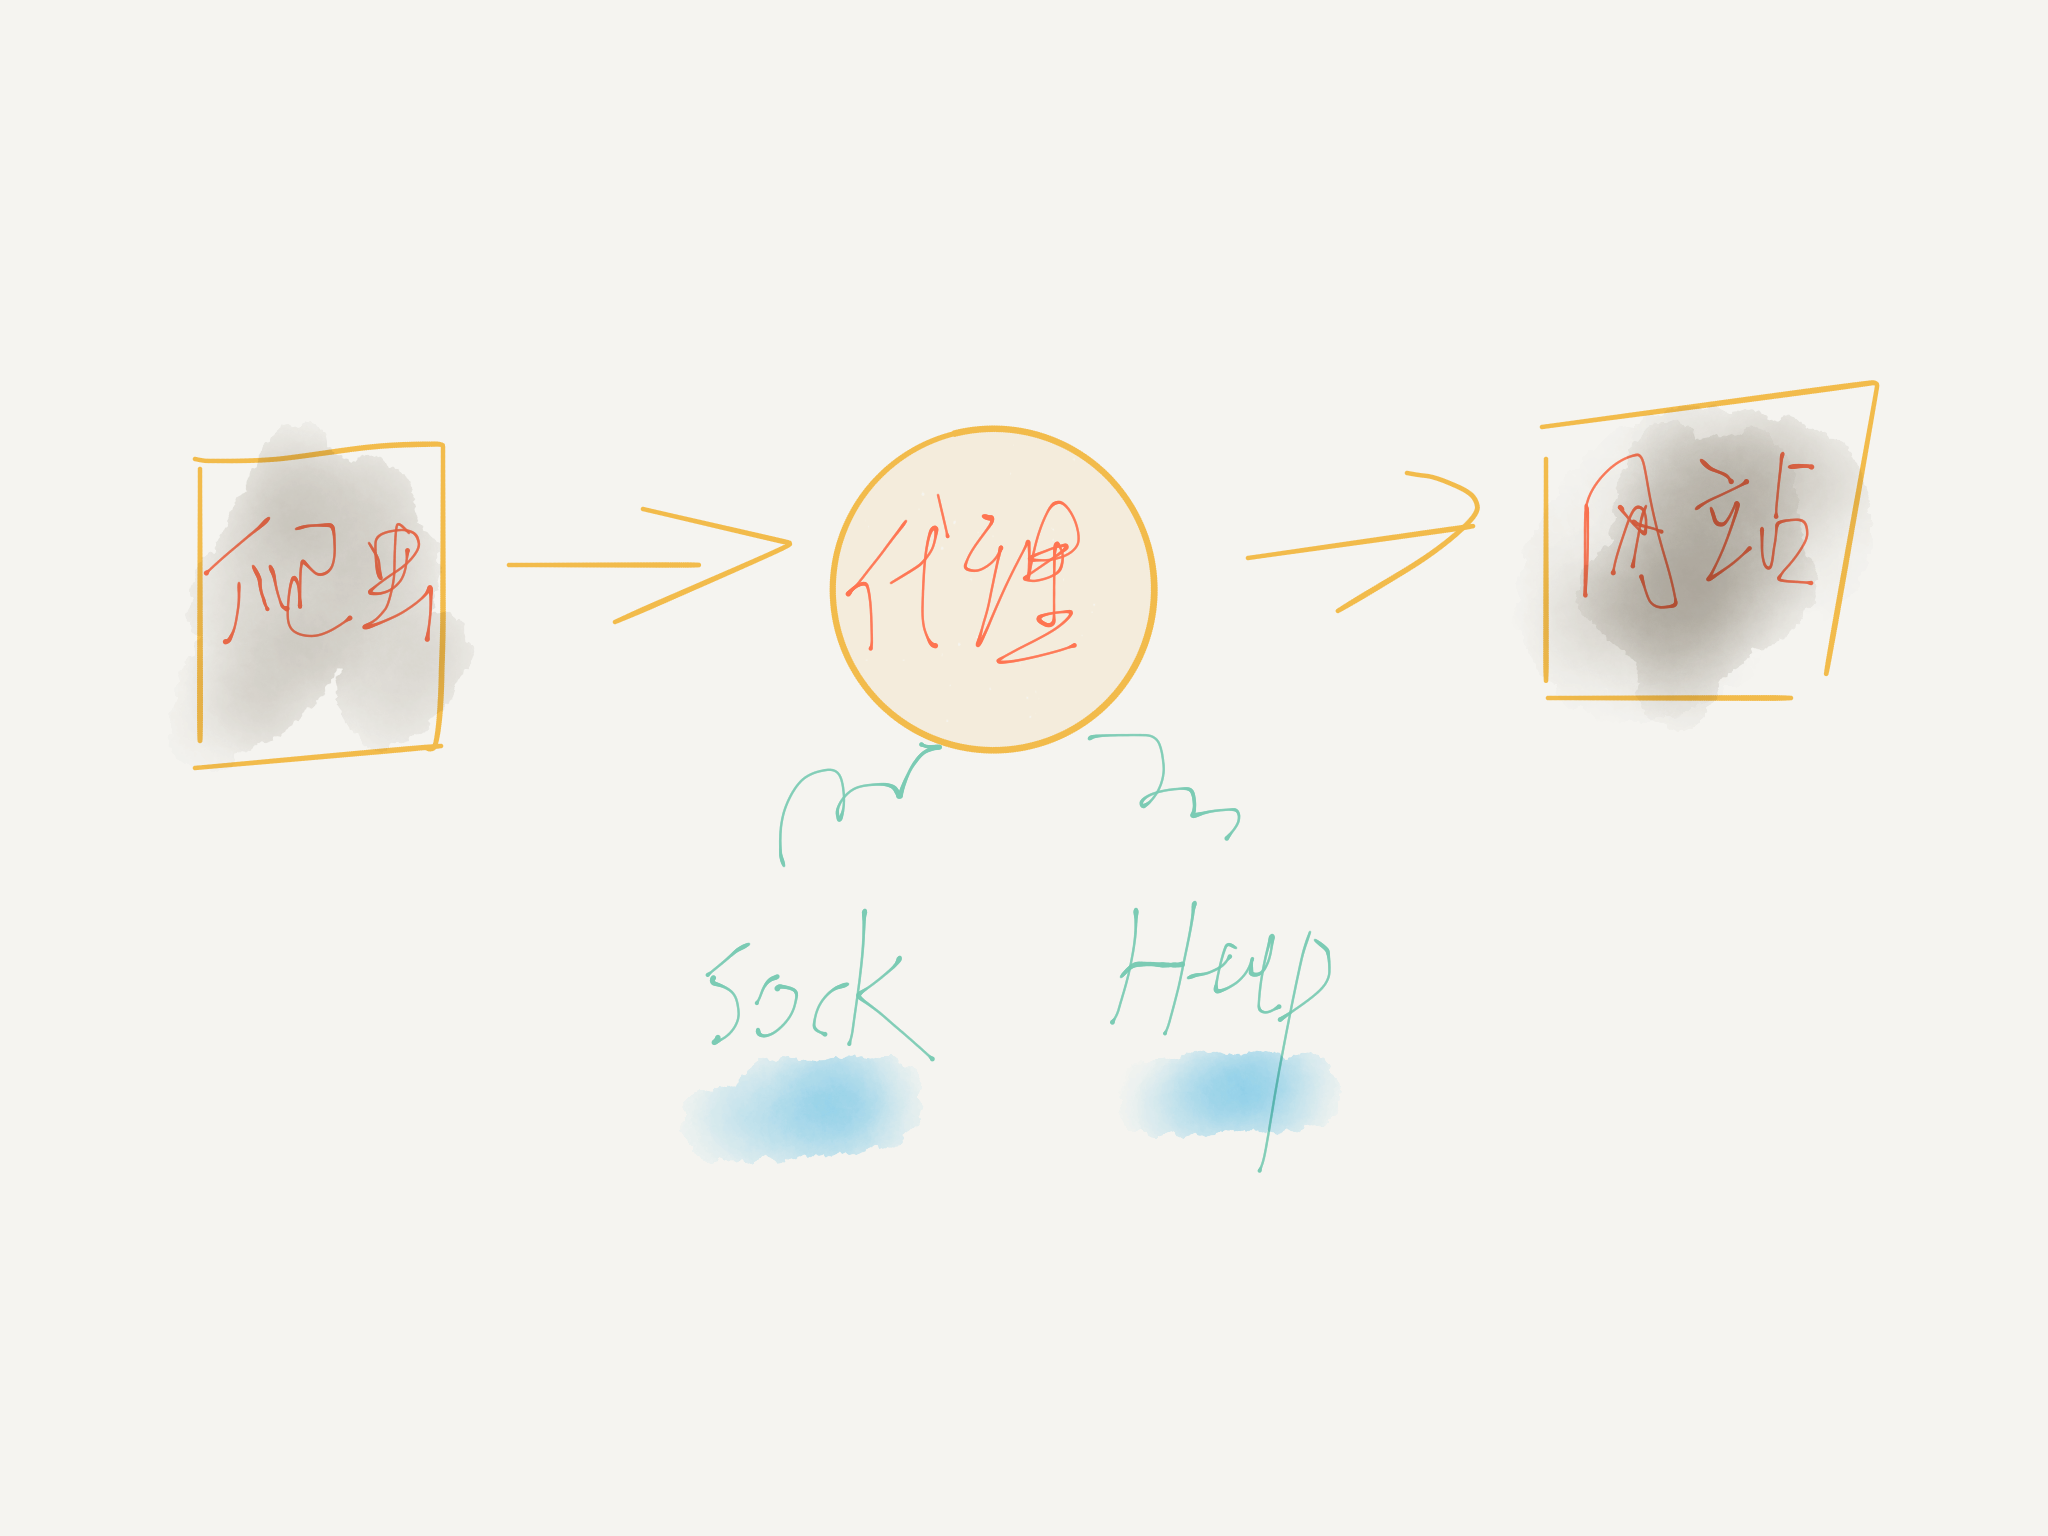 爬虫
代理
网站
Sock
Http